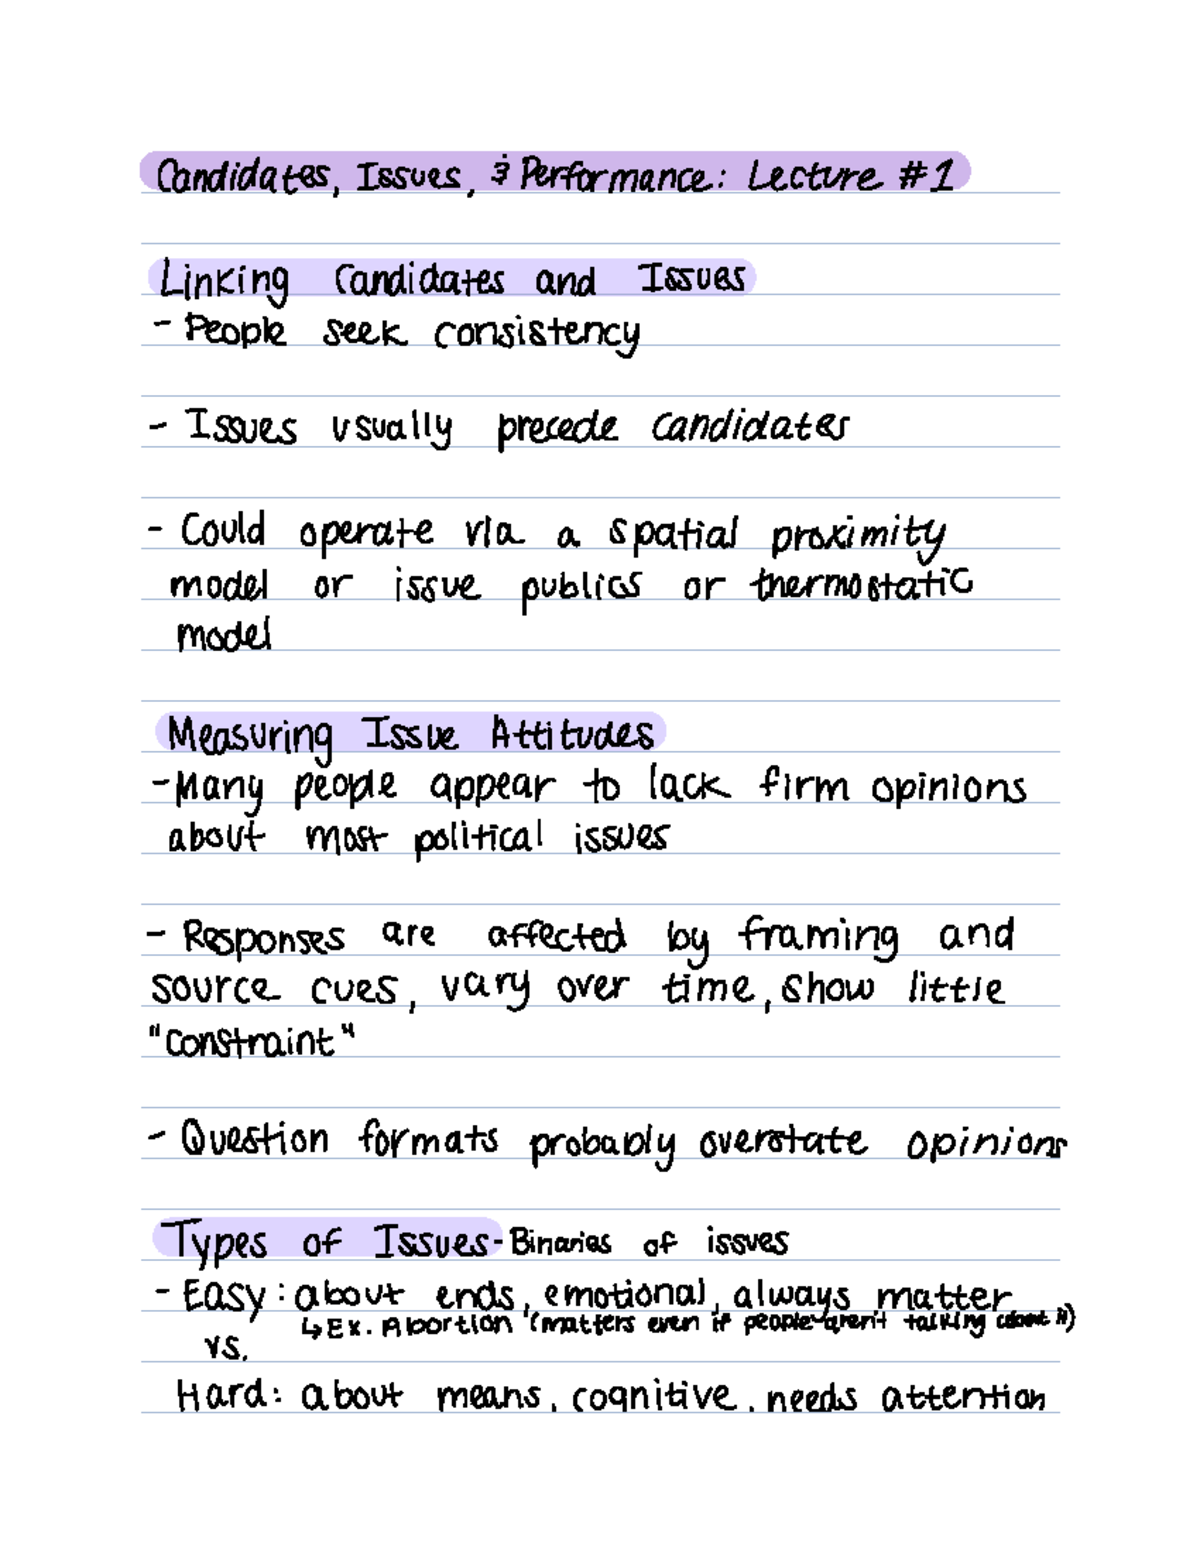 Candidates, Issues, & Performance: Lecture #1
Linking Candidates and Issues
- People seek consistency
- Issues usually precede candidates
- Could operate via a spatial proximity
model or issue publics or thermostatic
model
Measuring Issue Attitudes
- Many people appear to lack firm opinions
about most political issues
- Responses are affected by framing and
source cues, vary over time, show little
"constraint"
- Question formats probably overstate opinions
Types of Issues - Binaries of issues
- Easy: about ends, emotional, always matter
↳ Ex. Abortion (matters even if people aren't talking about it)
vs.
Hard: about means, cognitive, needs attention